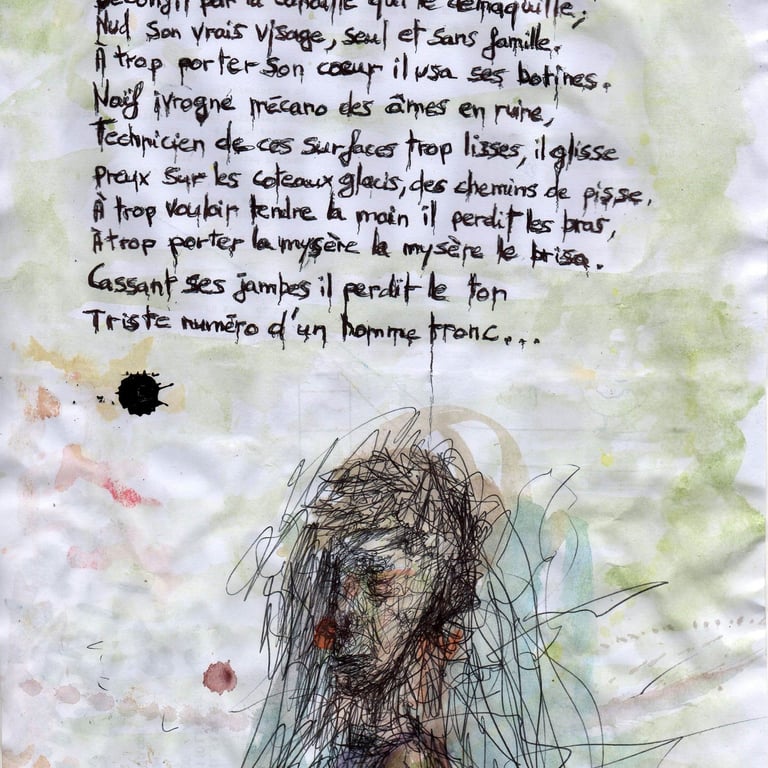 par la canaille qui le démaquille;
Nud son vrais visage, seul et sans famille.
À trop porter son coeur il usa ses botines.
Naïf ivrogne mécano des âmes en ruine,
Technicien de ces surfaces trop lisses, il glisse
Preux sur les coteaux glacis, des chemins de pisse.
À trop vouloir tendre la main il perdit les bras,
À trop porter la mysère la mysère le brisa.
Cassant ses jambes il perdit le ton
Triste numéro d'un homme tronc...